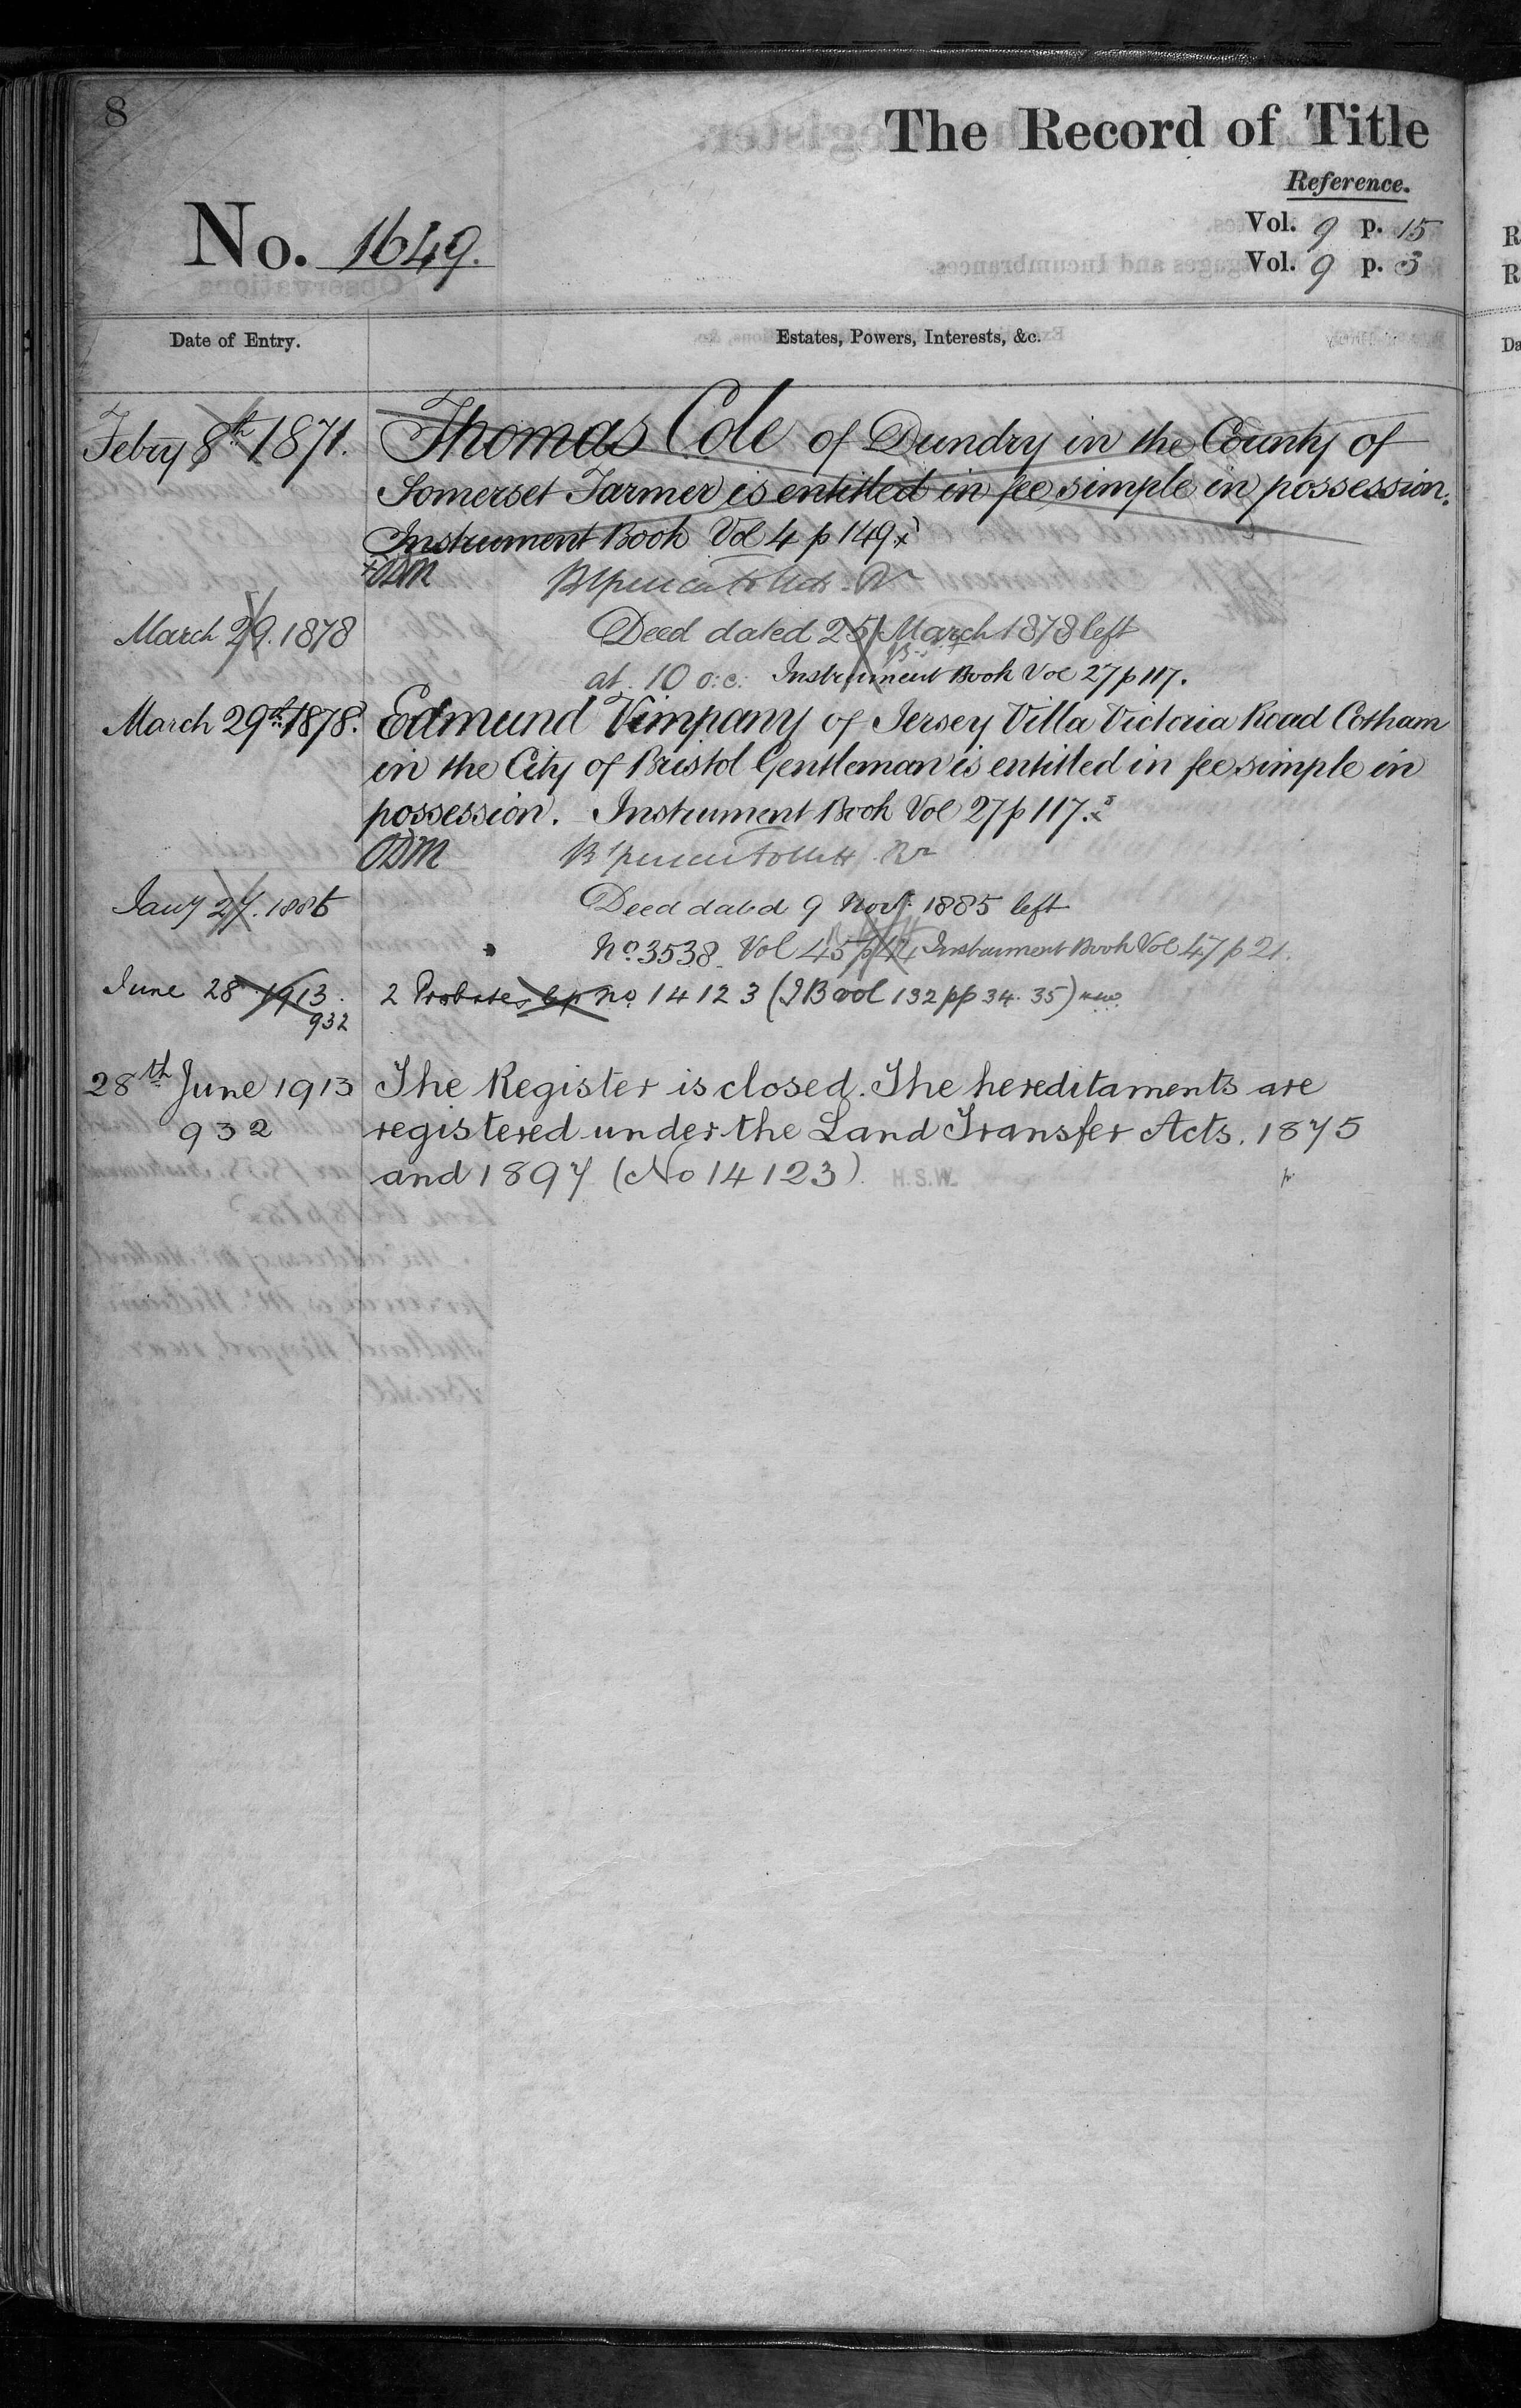 8
The Record of Title
Reference.
No. 1649.
Vol. 9 p. 15
Vol. 9 p. 3
Date of Entry.
Estates, Powers, Interests, &c.
Febry 8th 1871. Thomas Cole of Dundry in the County of
Somerset Farmer is entitled in fee simple in possession.
Instrument Book Vol 4 p 149
ODM
March 29. 1878 Deed dated 25 March 1878 left
at 10 o:c: Instrument Book Vol 27 p 117.
March 29th 1878. Edmund Vimpany of Jersey Villa Victoria Road Cotham
in the City of Bristol Gentleman is entitled in fee simple in
possession. Instrument Book Vol 27 p 117.
ODM
Jany 27. 1886 Deed dated 9 Novr. 1885 left
No. 3538. Vol 45 p 44 Instrument Book Vol 47 p 21.
June 28 1913. 2 Probates no 14123 (IB vol 132 pp 34. 35)
932
28th June 1913 The Register is closed. The hereditaments are
932 registered under the Land Transfer Acts. 1875
and 1897 (No 14123). H.S.W.